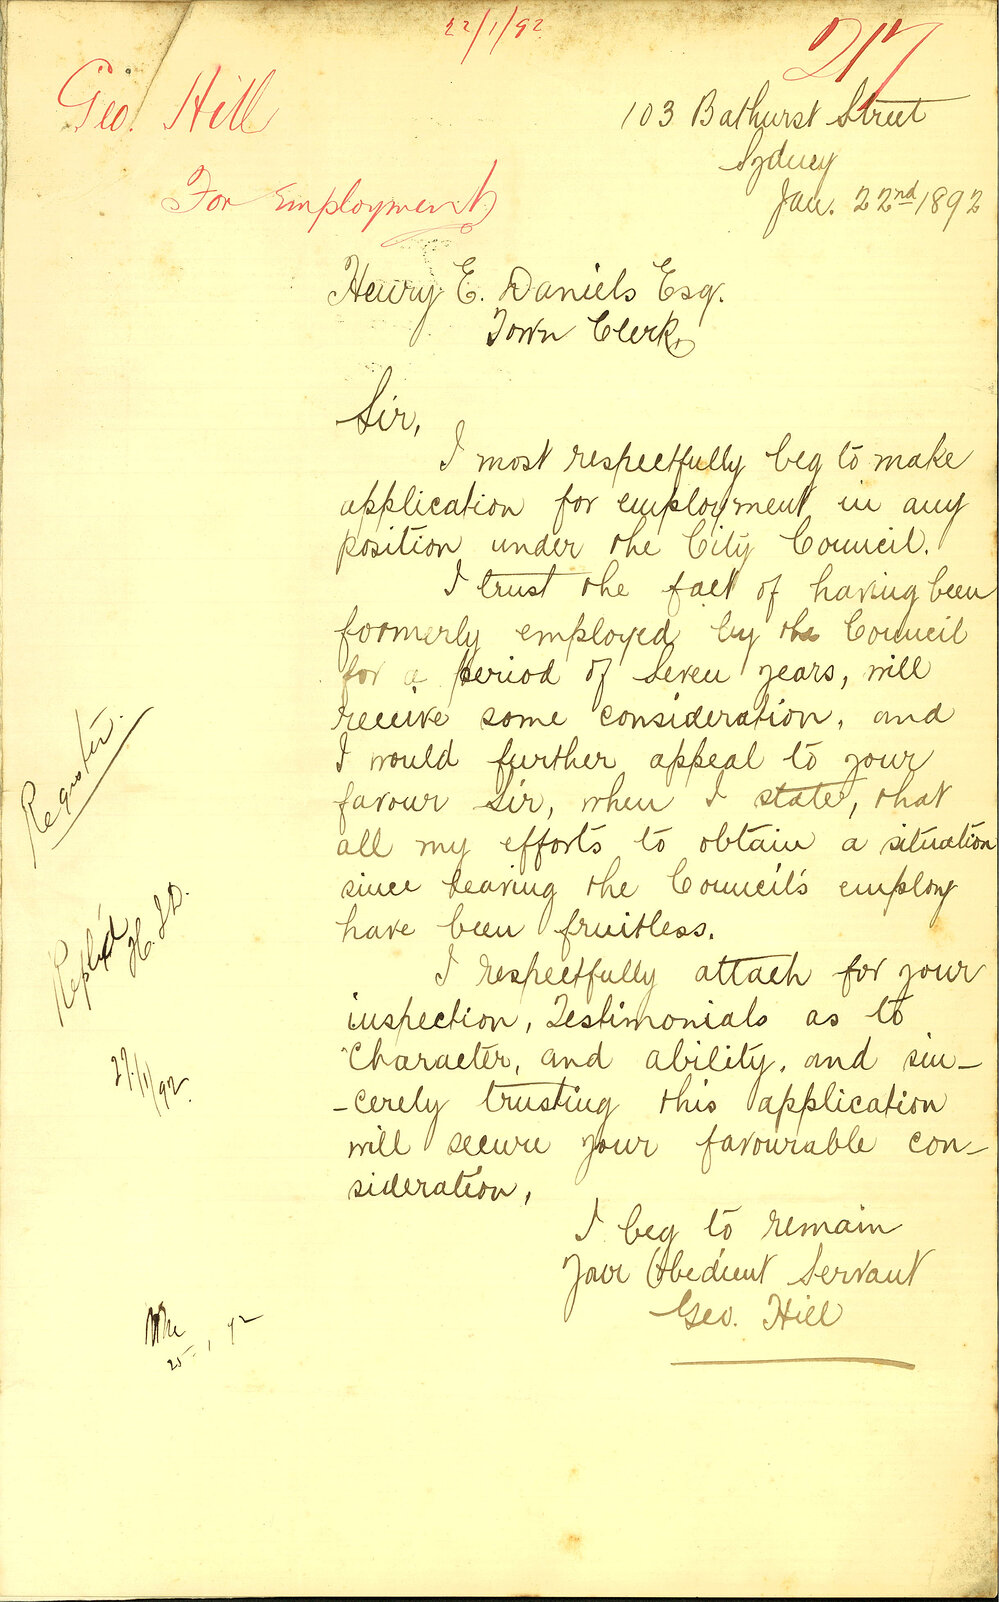 22/1/92
217
Geo. Hill
For Employment
103 Bathurst Street
Sydney
Jan. 22nd 1892
Henry E. Daniels Esq.
Town Clerk,
Sir,
I most respectfully beg to make
application for employment in any
position under the City Council.
I trust the fact of having been
formerly employed by the Council
for a period of seven years, will
receive some consideration, and
I would further appeal to your
favour Sir, when I state, that
all my efforts to obtain a situation
since leaving the Council's employ
have been fruitless.
I respectfully attach for your
inspection, Testimonials as to
Character, and ability, and sin-
-cerely trusting this application
will secure your favourable con-
sideration,
I beg to remain
Your Obedient Servant
Geo. Hill
Register.
Replied
29/1/92
25-1-92